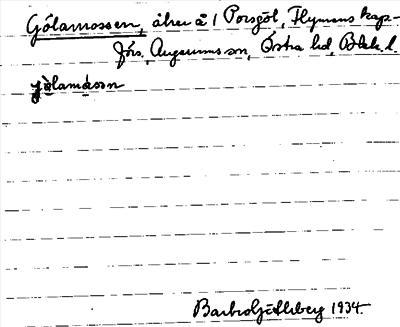 Gölamossen, åker å 1 Porsgöl, Flymens kap-
förs, Augerums sn, Östra hd, Blek. l.
jö̀lamåsən
Barbro Götlberg 1934.